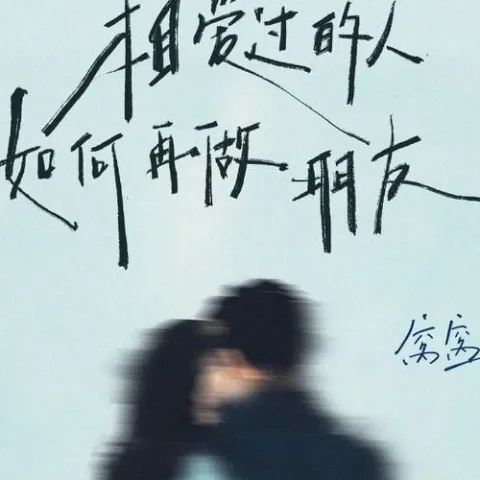 相爱过的人
如何再做朋友
窝窝